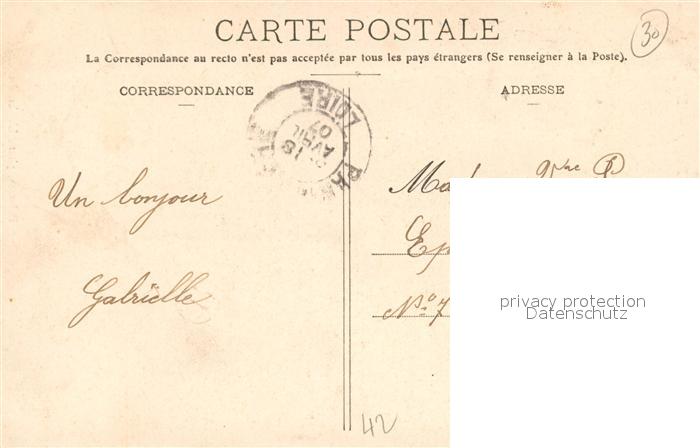 CARTE POSTALE
30
La Correspondance au recto n'est pas acceptée par tous les pays étrangers (Se renseigner à la Poste).
CORRESPONDANCE
ADRESSE
LOIRE
18
AVRIL
07
Un bonjour
Gabrielle
Vve P
Nº 7
privacy protection
Datenschutz
42